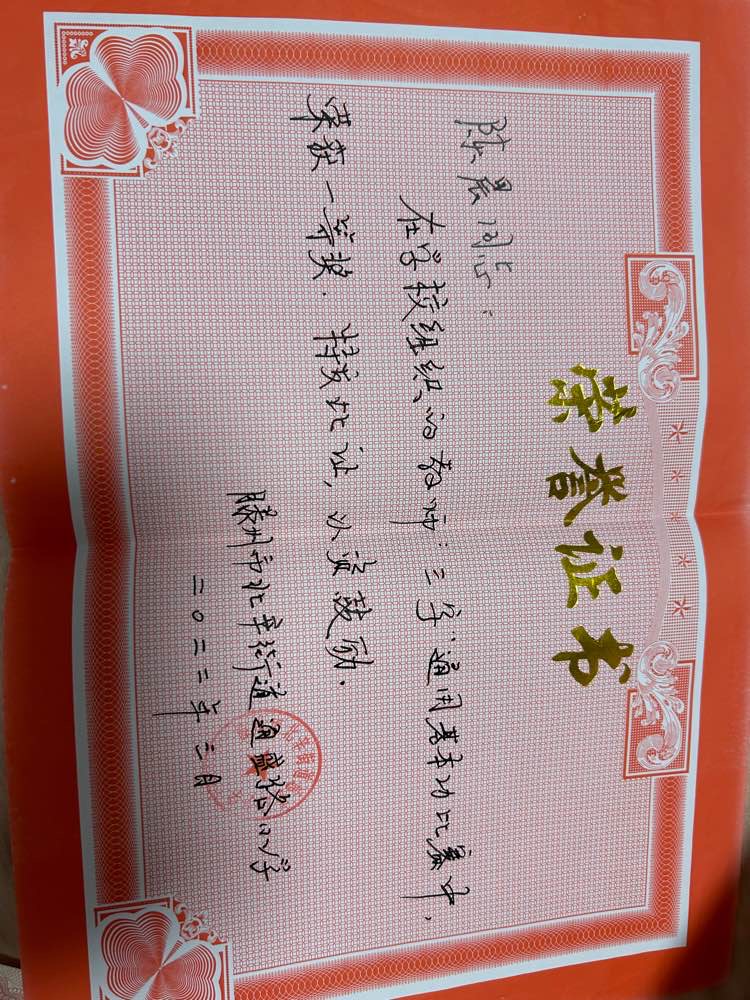 荣誉证书
陈晨同志：
在学校组织的教师“三字”通用基本功比赛中，
荣获一等奖．特发此证，以资鼓励．
滕州市北辛街道通盛路小学
二〇二二年三月